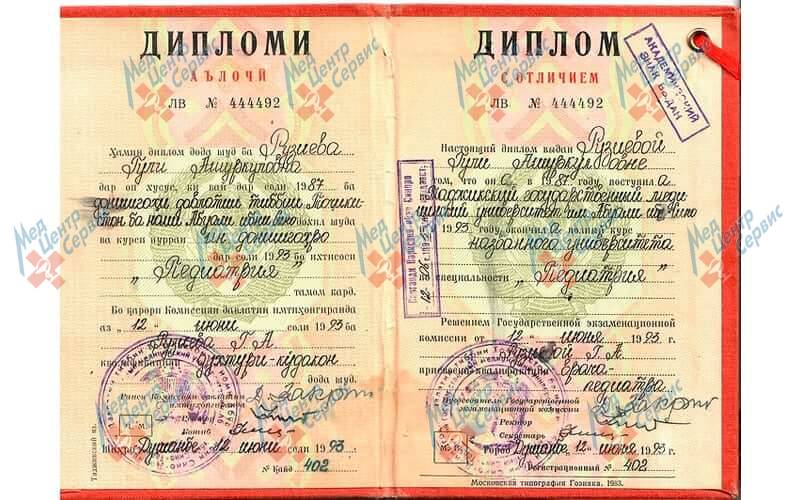 ДИПЛОМИ
АЪЛОЧӢ
ЛВ № 444492
Ҳамин диплом дода шуд ба Рузиева
Гули Ашуркуловна
дар он хусус, ки вай дар соли 1987 ба
донишгоҳи давлатии тиббии Тоҷики-
стон ба номи Абӯалӣ ибни Сино дохил шуда
ва курси пурраи ин донишгоҳро
дар соли 1993 ба ихтисоси
„Педиатрия"
тамом кард.
Бо қарори Комиссияи давлатии имтиҳонгиранда
аз „12" июни соли 1993 ба
Рузиева Г. А.
квалификацияи духтури кӯдакон
дода шуд.
Раиси Комиссияи давлатии
имтиҳонгиранда
Ректор
Котиб
М. П.
Шаҳри Душанбе 12 июни соли 1993
№ Қайд 402
Таджикский яз.
ДИПЛОМ
С ОТЛИЧИЕМ
ЛВ № 444492
АКАДЕМИЧЕСКИЙ
ЗНАК ВЫДАН
Настоящий диплом выдан Рузиевой
Гули Ашуркуловне
в том, что она в 1987 году поступила
в Таджикский государственный меди-
цинский университет им. Абуали ибн Сино
и в 1993 году окончила полный курс
названного университета
по специальности „Педиатрия"
Решением Государственной экзаменационной
комиссии от „12" июня 1993 г.
Рузиевой Г. А.
присвоена квалификация врача-
педиатра
Председатель Государственной
экзаменационной комиссии
Ректор
Секретарь
М. П.
Город Душанбе 12 июня 1993 г.
Регистрационный № 402
Московская типография Гознака, 1983.
Мед Центр Сервис